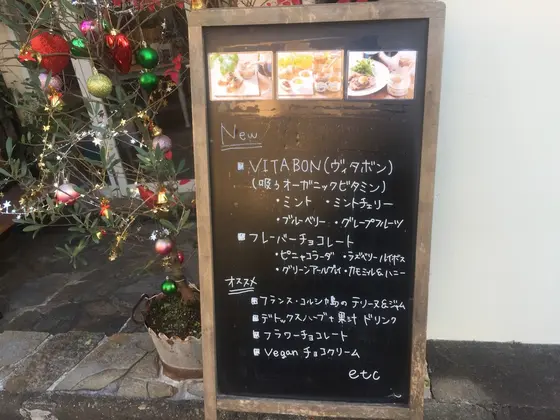 New
VITABON(ヴィタボン)
(吸うオーガニックビタミン)
・ミント ・ミントチェリー
・ブルーベリー ・グレープフルーツ
フレーバーチョコレート
・ピニャコラーダ ・ラズベリールイボス
・グリーンアールグレイ ・カモミール&ハニー
オススメ
フランス・コルシカ島の テリーヌ&ジャム
デトックスハーブ+果汁 ドリンク
フラワーチョコレート
Vegan チョコクリーム
etc